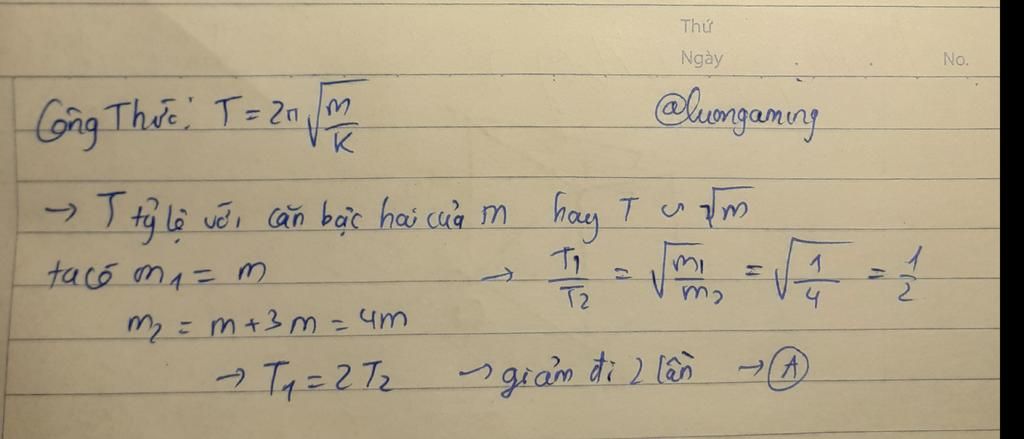 Thứ
Ngày . . No.
Công Thức: T = 2π√(m/K) @luongaming
→ T tỷ lệ với căn bậc hai của m hay T ∽ √m
ta có m₁ = m → T₁/T₂ = √(m₁/m₂) = √(1/4) = 1/2
m₂ = m + 3m = 4m
→ T₁ = 2T₂ → giảm đi 2 lần → Ⓐ